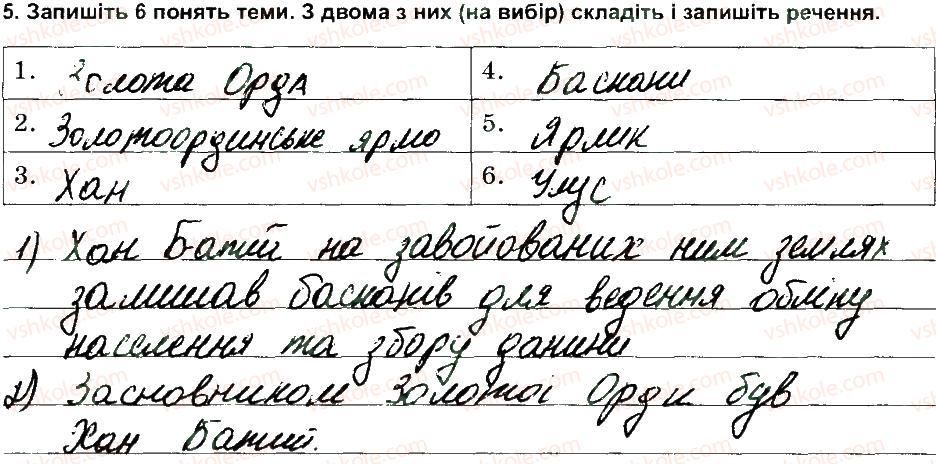 5. Запишіть 6 понять теми. З двома з них (на вибір) складіть і запишіть речення.
1. Золота Орда
4. Баскаки
2. Золотоординське ярмо
5. Ярлик
3. Хан
6. Улус
1) Хан Батий на завойованих ним землях
залишав баскаків для ведення обліку
населення та збору данини
2) Засновником Золотої Орди був
Хан Батий.